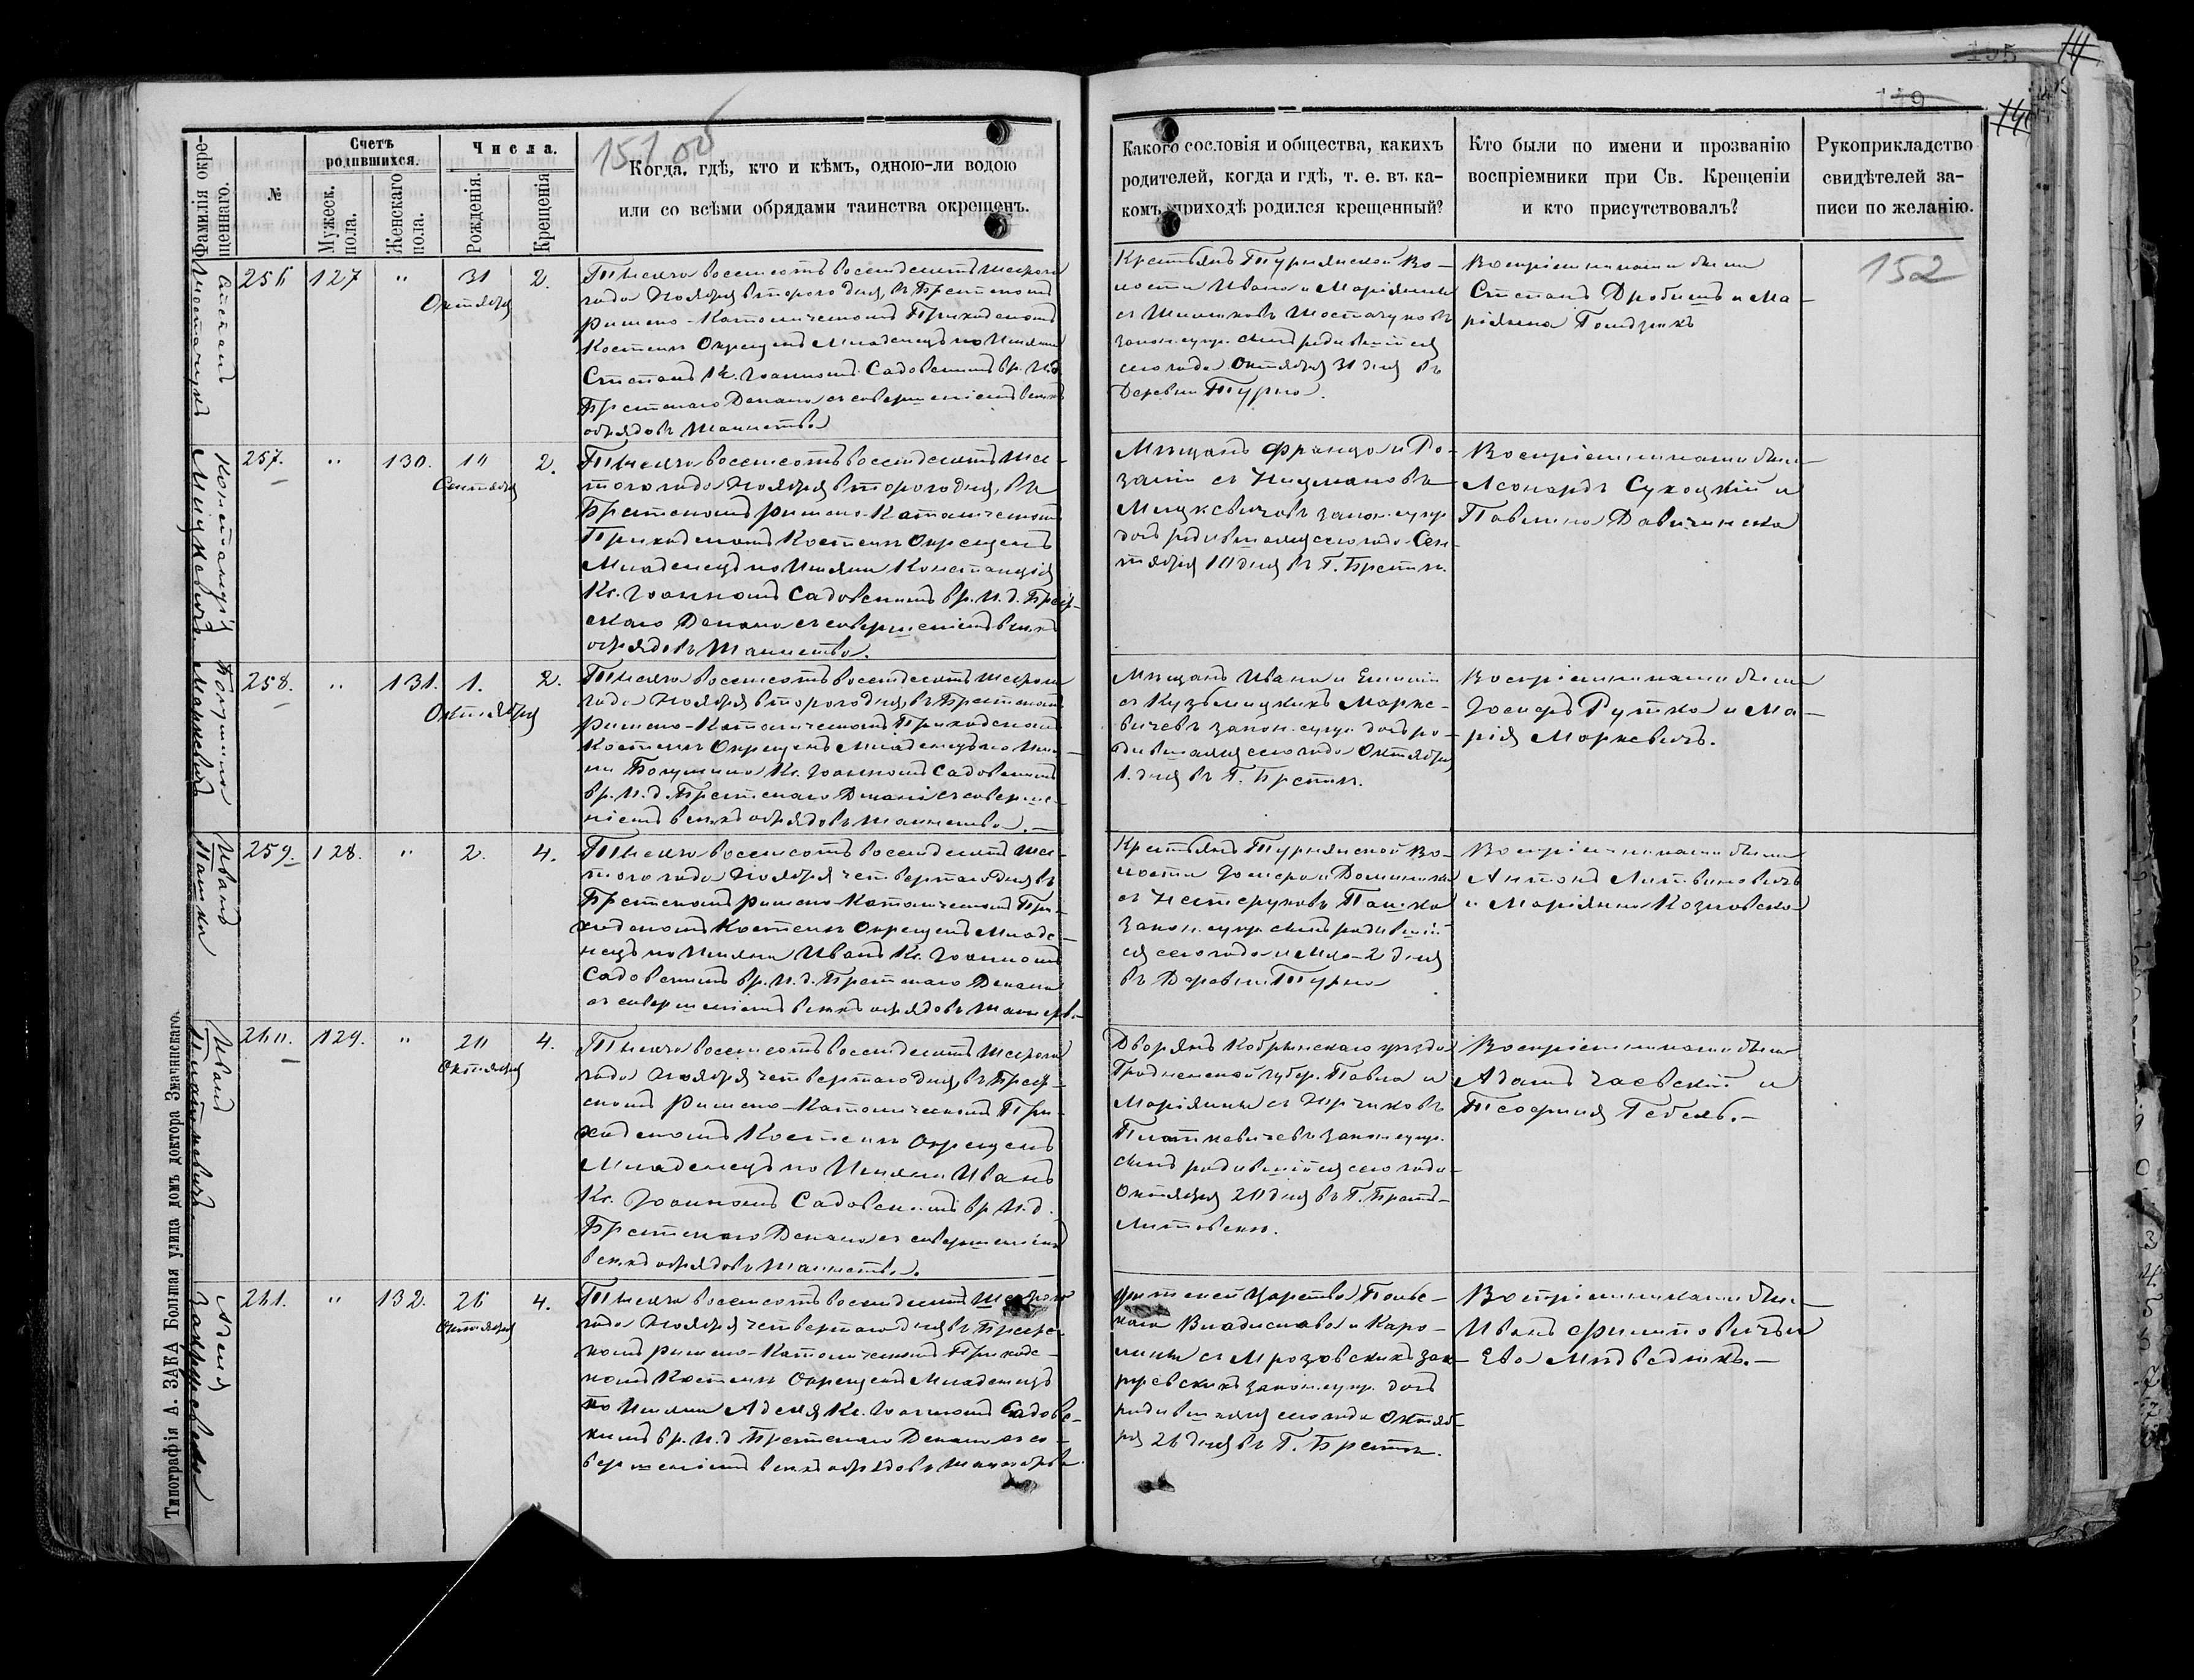 151 об
119
152
Фамилія и имя окрещеннаго.
№
Счетъ родившихся.
Мужеск. пола.
Женскаго пола.
Числа.
Рожденія.
Крещенія
Когда, гдѣ, кто и кѣмъ, одною-ли водою
или со всѣми обрядами таинства окрещенъ.
Какого сословія и общества, какихъ
родителей, когда и гдѣ, т. е. въ ка-
комъ приходѣ родился крещенный?
Кто были по имени и прозванію
воспріемники при Св. Крещеніи
и кто присутствовалъ?
Рукоприкладство
свидѣтелей за-
писи по желанію.
Степанъ
256 127 " 31 2.
Октября
Тысяча восемсотъ восемдесятъ шестого
года Ноября второго дня, въ Брестскомъ
Римско-Католическомъ Приходскомъ
Костелѣ Окрещенъ Младенецъ по Имени
Степанъ Кс. Іоанномъ Садовскимъ вр. И.д.
Брестскаго Декана съ совершеніемъ всѣхъ
обрядовъ Таинства
Крестьянъ Турнянской Во-
лости Ивана и Маріянны
закон. супр. сынъ родившійся
сего года Октября 31 дня въ
Деревни Турно.
Воспріемниками были
Степанъ Дробишъ и Ма-
ріянна
Констанція Мицкевичъ
257. " 130. 10 2.
Сентября
Тысяча восемсотъ восемдесятъ шес-
того года Ноября второго дня, въ
Брестскомъ Римско-Католическомъ
Приходскомъ Костелѣ Окрещенъ
Младенецъ по Имени Констанція
Кс. Іоанномъ Садовскимъ вр. И.д. Брест-
скаго Декана съ совершеніемъ всѣхъ
обрядовъ Таинства.
Мѣщанъ Франца и Ро-
заліи съ
Мицкевичовъ закон. супр
дочь родившаяся сего года Сен-
тября 10 дня въ Г. Брестѣ.
Воспріемниками были
Леонардъ Сухоцкій и
Павлина
Маркевичъ
258. " 131. 1. 2.
Октября
Тысяча восемсотъ восемдесятъ шестого
года Ноября второго дня, въ Брестскомъ
Римско-Католическомъ Приходскомъ
Костелѣ Окрещенъ Младенецъ по Име-
ни Кс. Іоанномъ Садовскимъ
вр. И.д. Брестскаго Декана съ соверше-
ніемъ всѣхъ обрядовъ Таинства.
Мѣщанъ Ивана и Емиліи
съ Кузьмицкихъ Марке-
вичевъ закон. супр. дочь ро-
дившаяся сего года Октября
1. дня въ Г. Брестѣ.
Воспріемниками были
Іосифъ Рутко и Ма-
рія Маркевичъ.
Иванъ Пашко
259. 128. " 2. 4.
Тысяча восемсотъ восемдесятъ шес-
того года Ноября четвертаго дня въ
Брестскомъ Римско-Католическомъ При-
ходскомъ Костелѣ Окрещенъ Младе-
нецъ по Имени Иванъ Кс. Іоанномъ
Садовскимъ вр. И.д. Брестскаго Декана
съ совершеніемъ всѣхъ обрядовъ Таинства.
Крестьянъ Турнянской Во-
лости и Доминики
съ Нестеруковъ Пашко
закон. супр. сынъ родившій-
ся сего года и М-ца 2 дня
въ Деревни Турно
Воспріемниками были
Антонъ Литвиновичъ
и Маріянна Козловска
Иванъ
260. 129. " 20 4.
Октября
Тысяча восемсотъ восемдесятъ шестого
года Ноября четвертаго дня, въ Брест-
скомъ Римско-Католическомъ При-
ходскомъ Костелѣ Окрещенъ
Младенецъ по Имени Иванъ
Кс. Іоанномъ Садовскимъ вр. И.д.
Брестскаго Декана съ совершеніемъ
всѣхъ обрядовъ Таинства.
Дворянъ Кобринскаго уѣзда
Гродненской губер. Павла и
Маріянны съ
закон. супр.
сынъ родившійся сего года
Октября 20 дня въ Г. Брестъ-
Литовскѣ.
Воспріемниками были
Адамъ Гаевскій и
Теофиля
Аделя Закржевска
261. " 132. 26 4.
Октября
Тысяча восемсотъ восемдесятъ шестого
года Ноября четвертаго дня въ Брестс-
комъ Римско-Католическомъ Приходс-
комъ Костелѣ Окрещенъ Младенецъ
по Имени Аделя Кс. Іоанномъ Садовс-
кимъ вр. И.д. Брестскаго Декана съ со-
вершеніемъ всѣхъ обрядовъ Таинства.
Царства Польс-
каго Владислава и Каро-
лины съ Мрозовскихъ Зак-
ржевскихъ закон. супр. дочь
родившаяся сего года Октяб-
ря 26 дня въ Г. Брестѣ.
Воспріемниками были
Иванъ Филиповичъ и
Ева Медведюкъ.
Типографія А. ЗАКА Большая улица домъ доктора Змачинскаго.